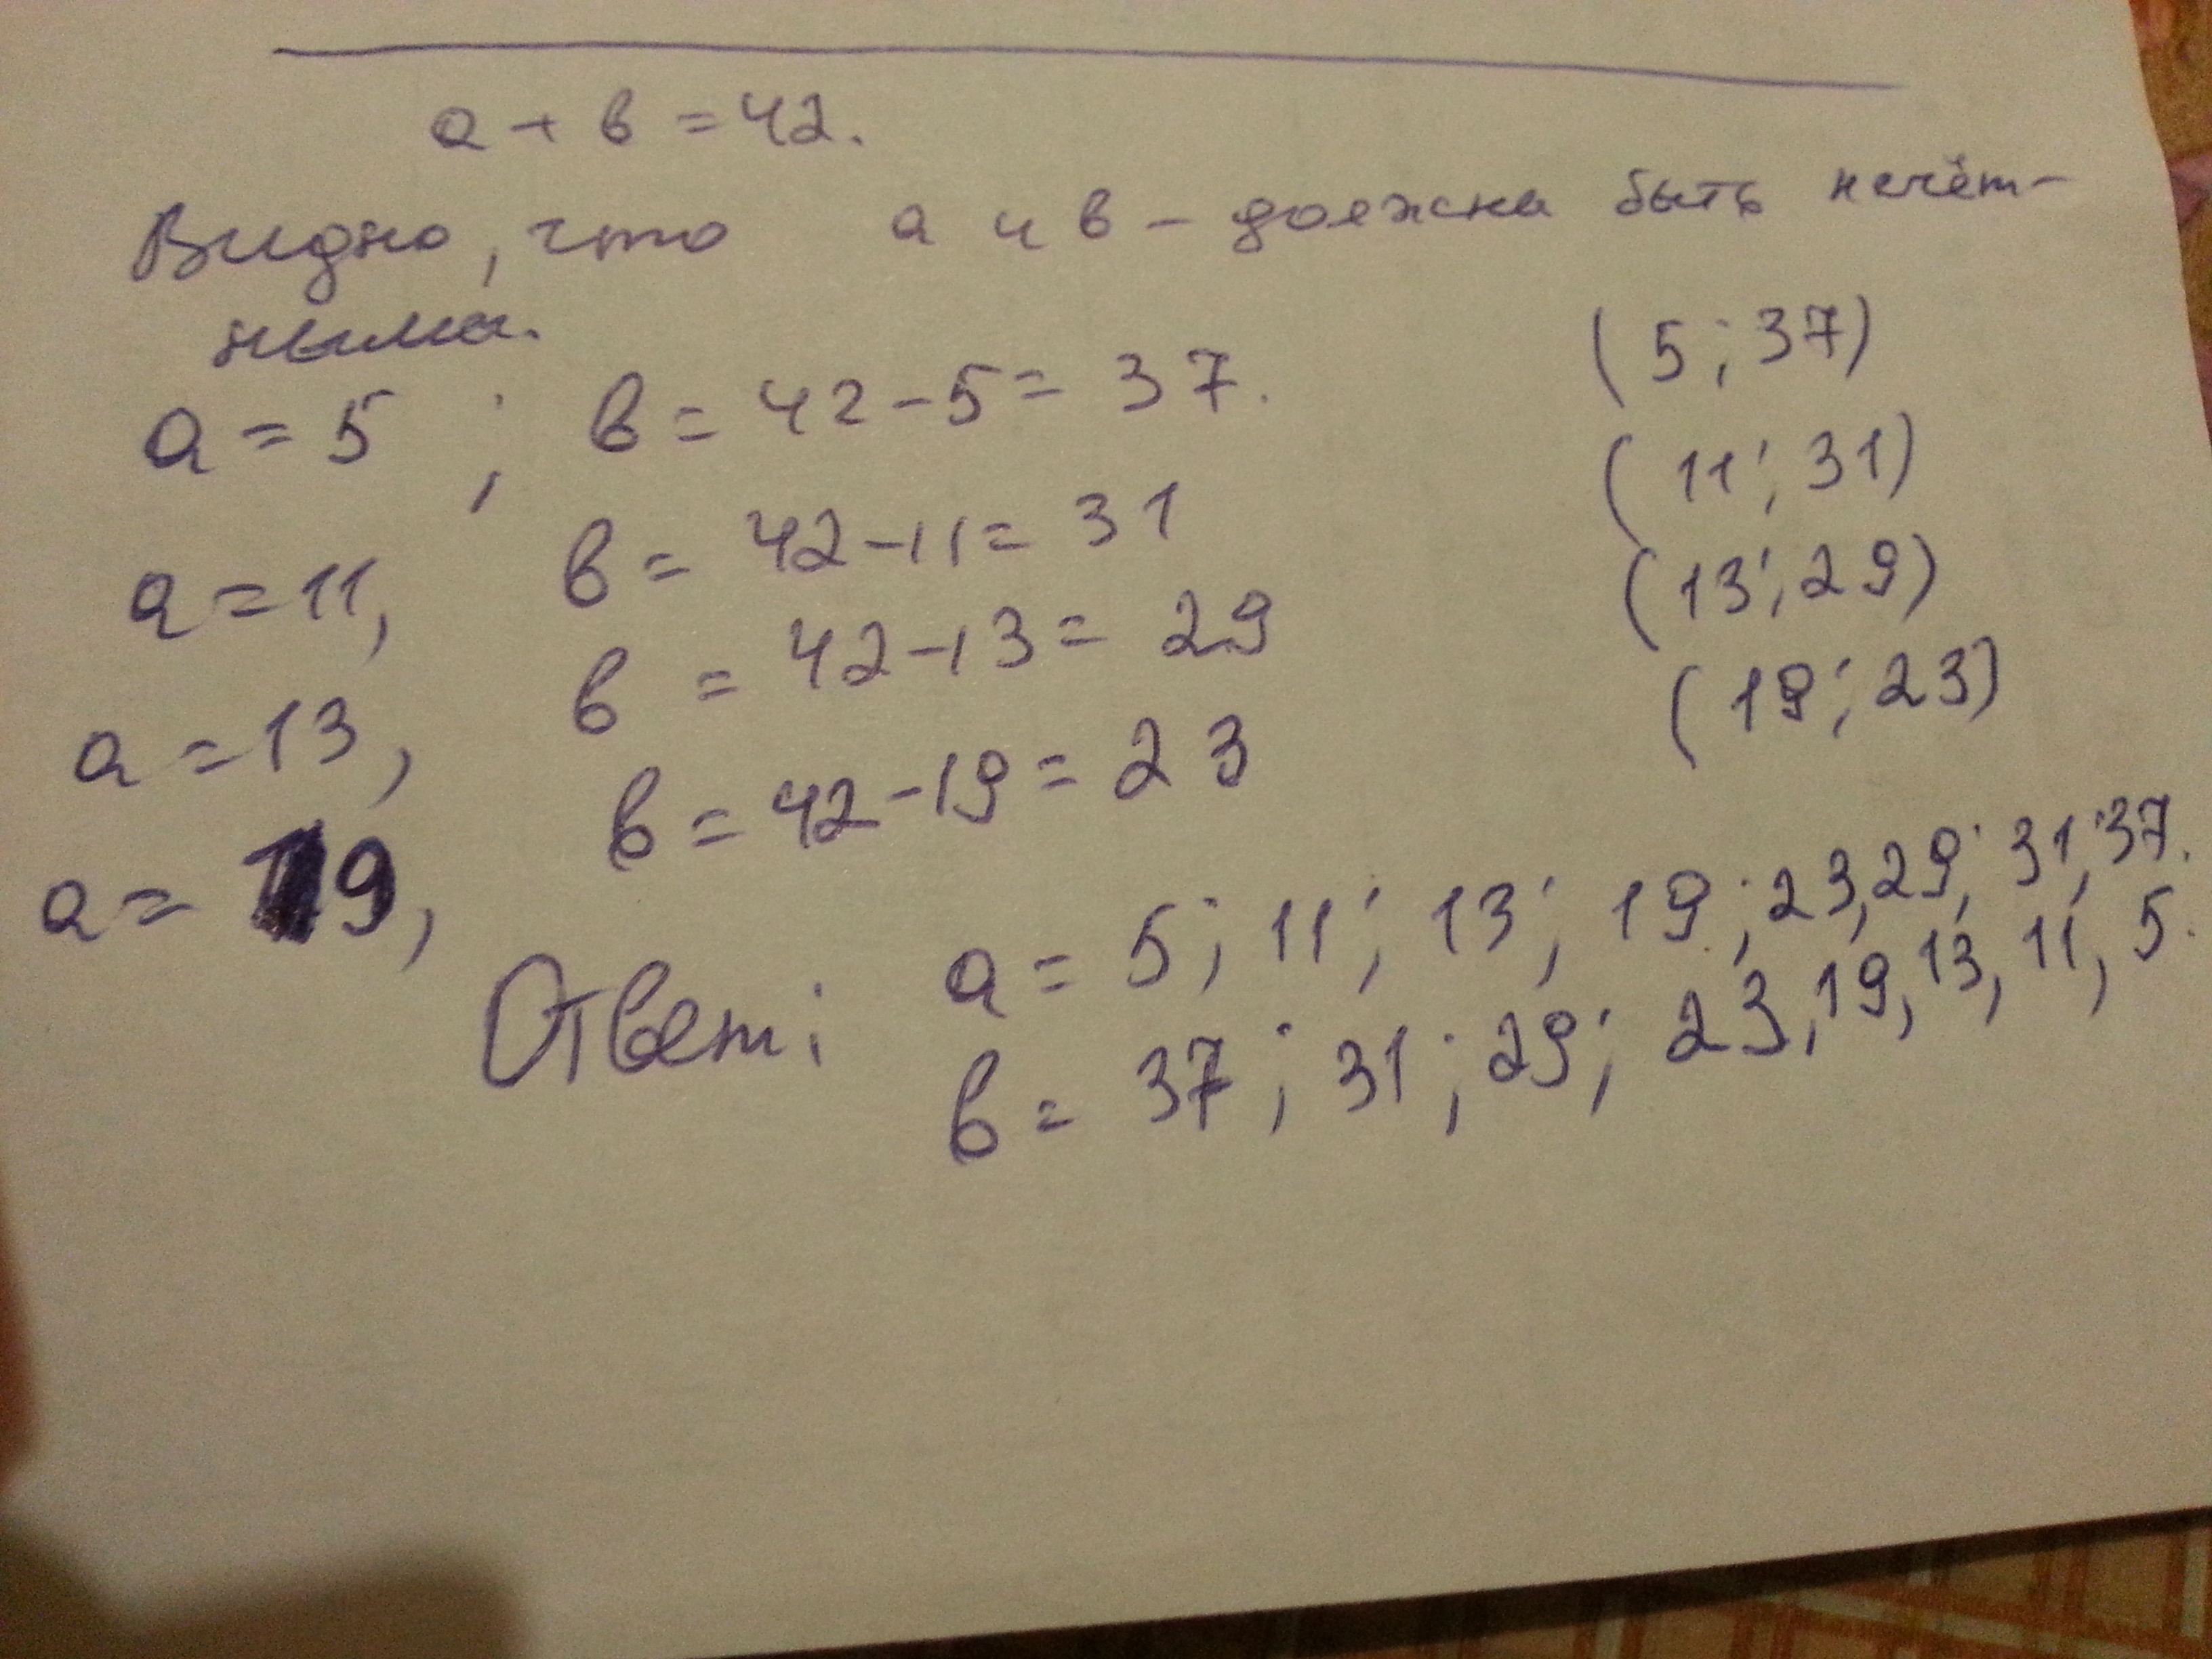 а + в = 42.
Видно, что а и в – должны быть нечёт-
ными.
а = 5 ; в = 42 – 5 = 37. (5; 37)
а = 11, в = 42 – 11 = 31 (11; 31)
а = 13, в = 42 – 13 = 29 (13; 29)
а = 19, в = 42 – 19 = 23 (19; 23)
Ответ: а = 5; 11; 13; 19; 23, 29; 31; 37.
в = 37; 31; 29; 23, 19, 13, 11, 5.